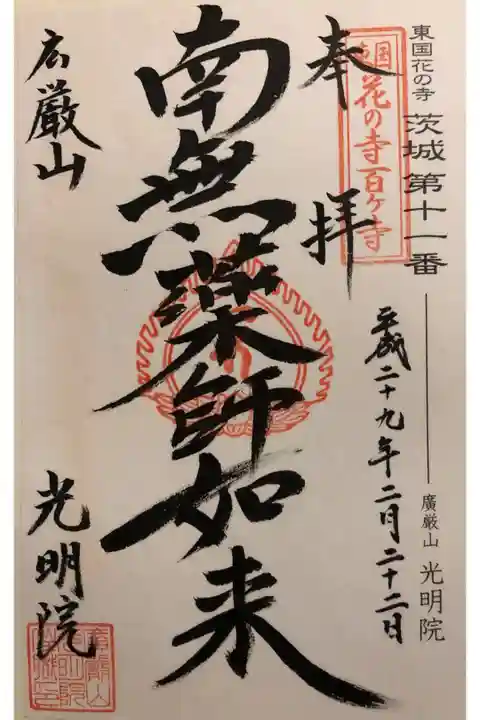 東国花の寺 茨城第十一番 廣厳山 光明院
東国花の寺百ヶ寺
奉拝
平成二十九年二月二十二日
南無薬師如来
広厳山
光明院